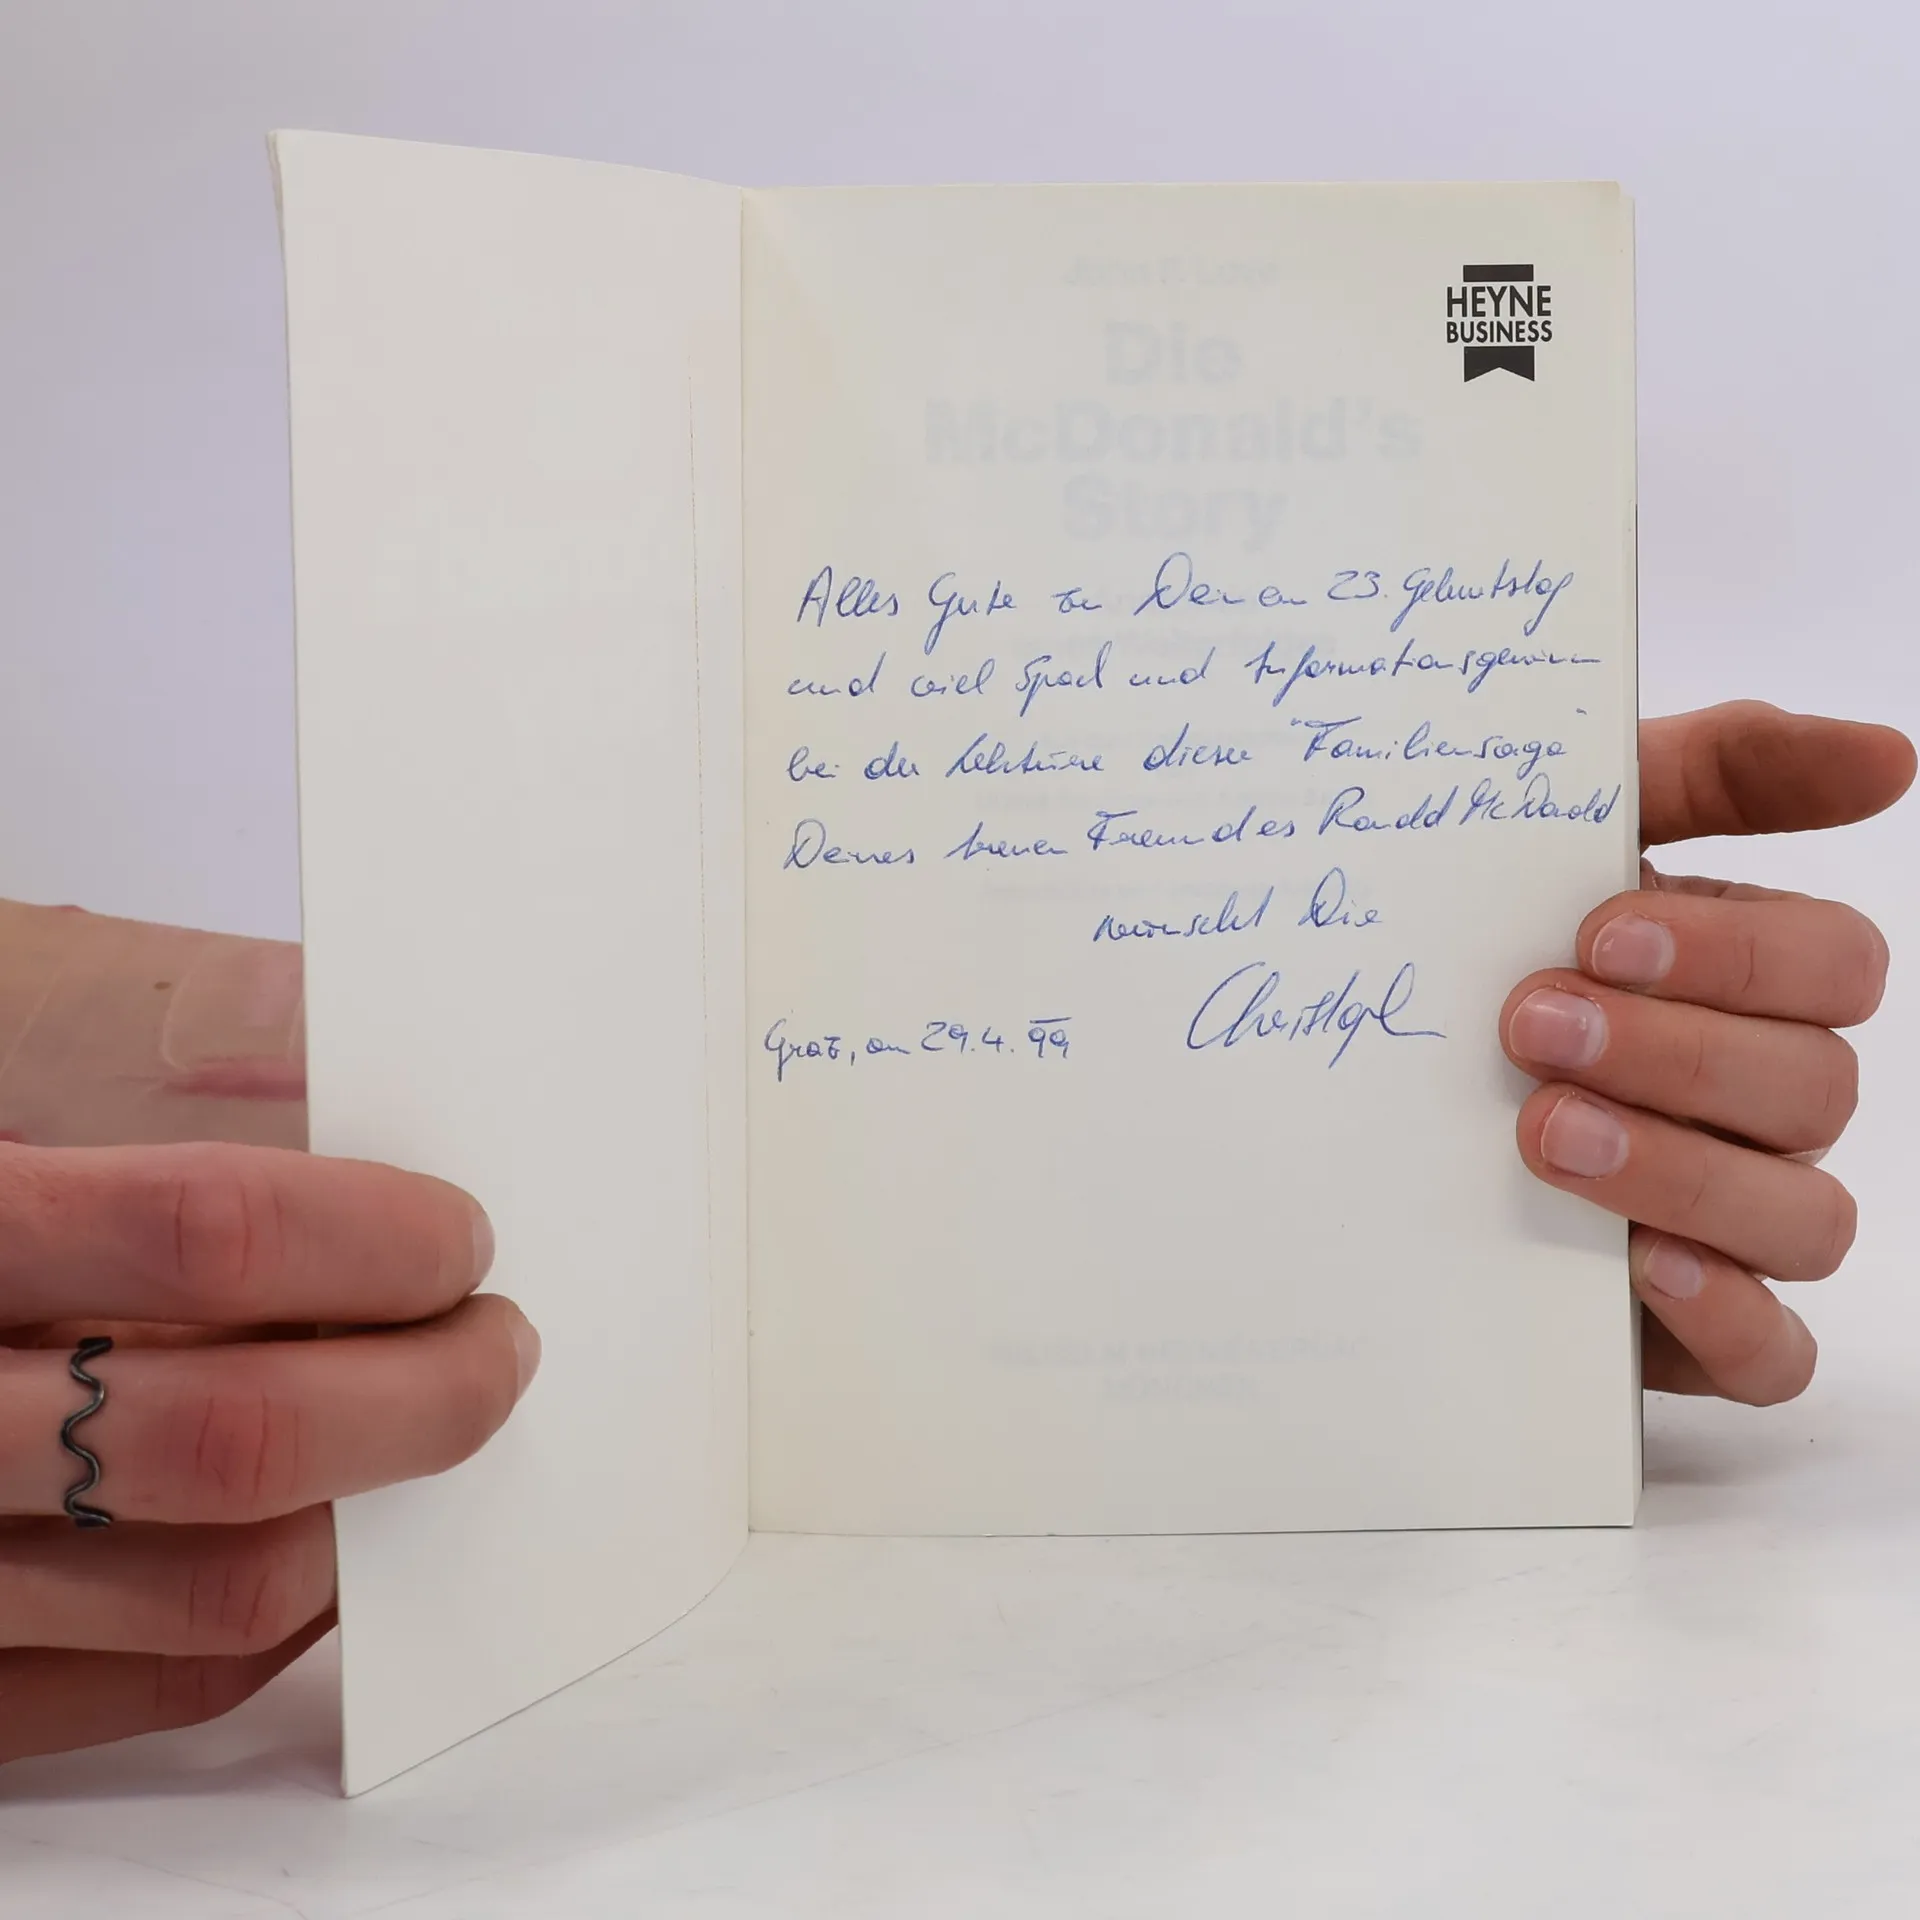 HEYNE
BUSINESS
Die
McDonald's
Story
Alles Gute zu Deinem 23. Geburtstag
und viel Spaß und Informationsgewinn
bei der Lektüre dieser "Familiensaga"
Deines treuen Freundes Ronald McDonald
wünscht Dir
Christoph
Graz, am 29.4.99